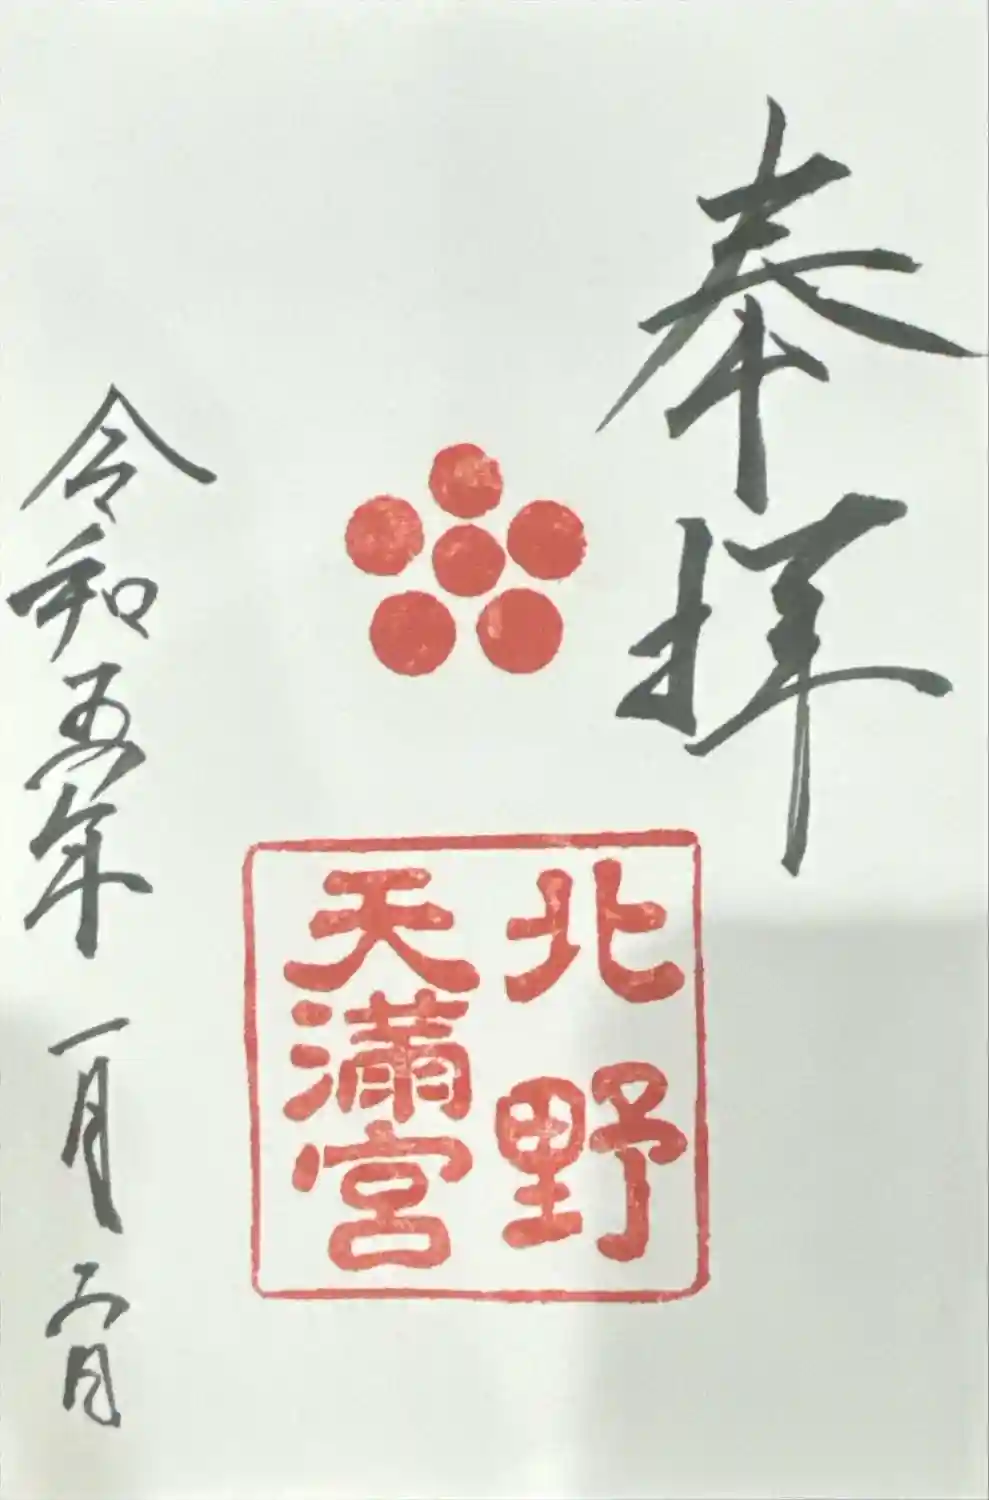 奉拝
北野
天満宮
令和五年 一月六日